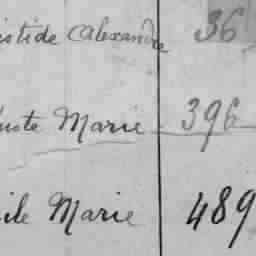 istide Alexandre 36
uste Marie 396
ile Marie 489